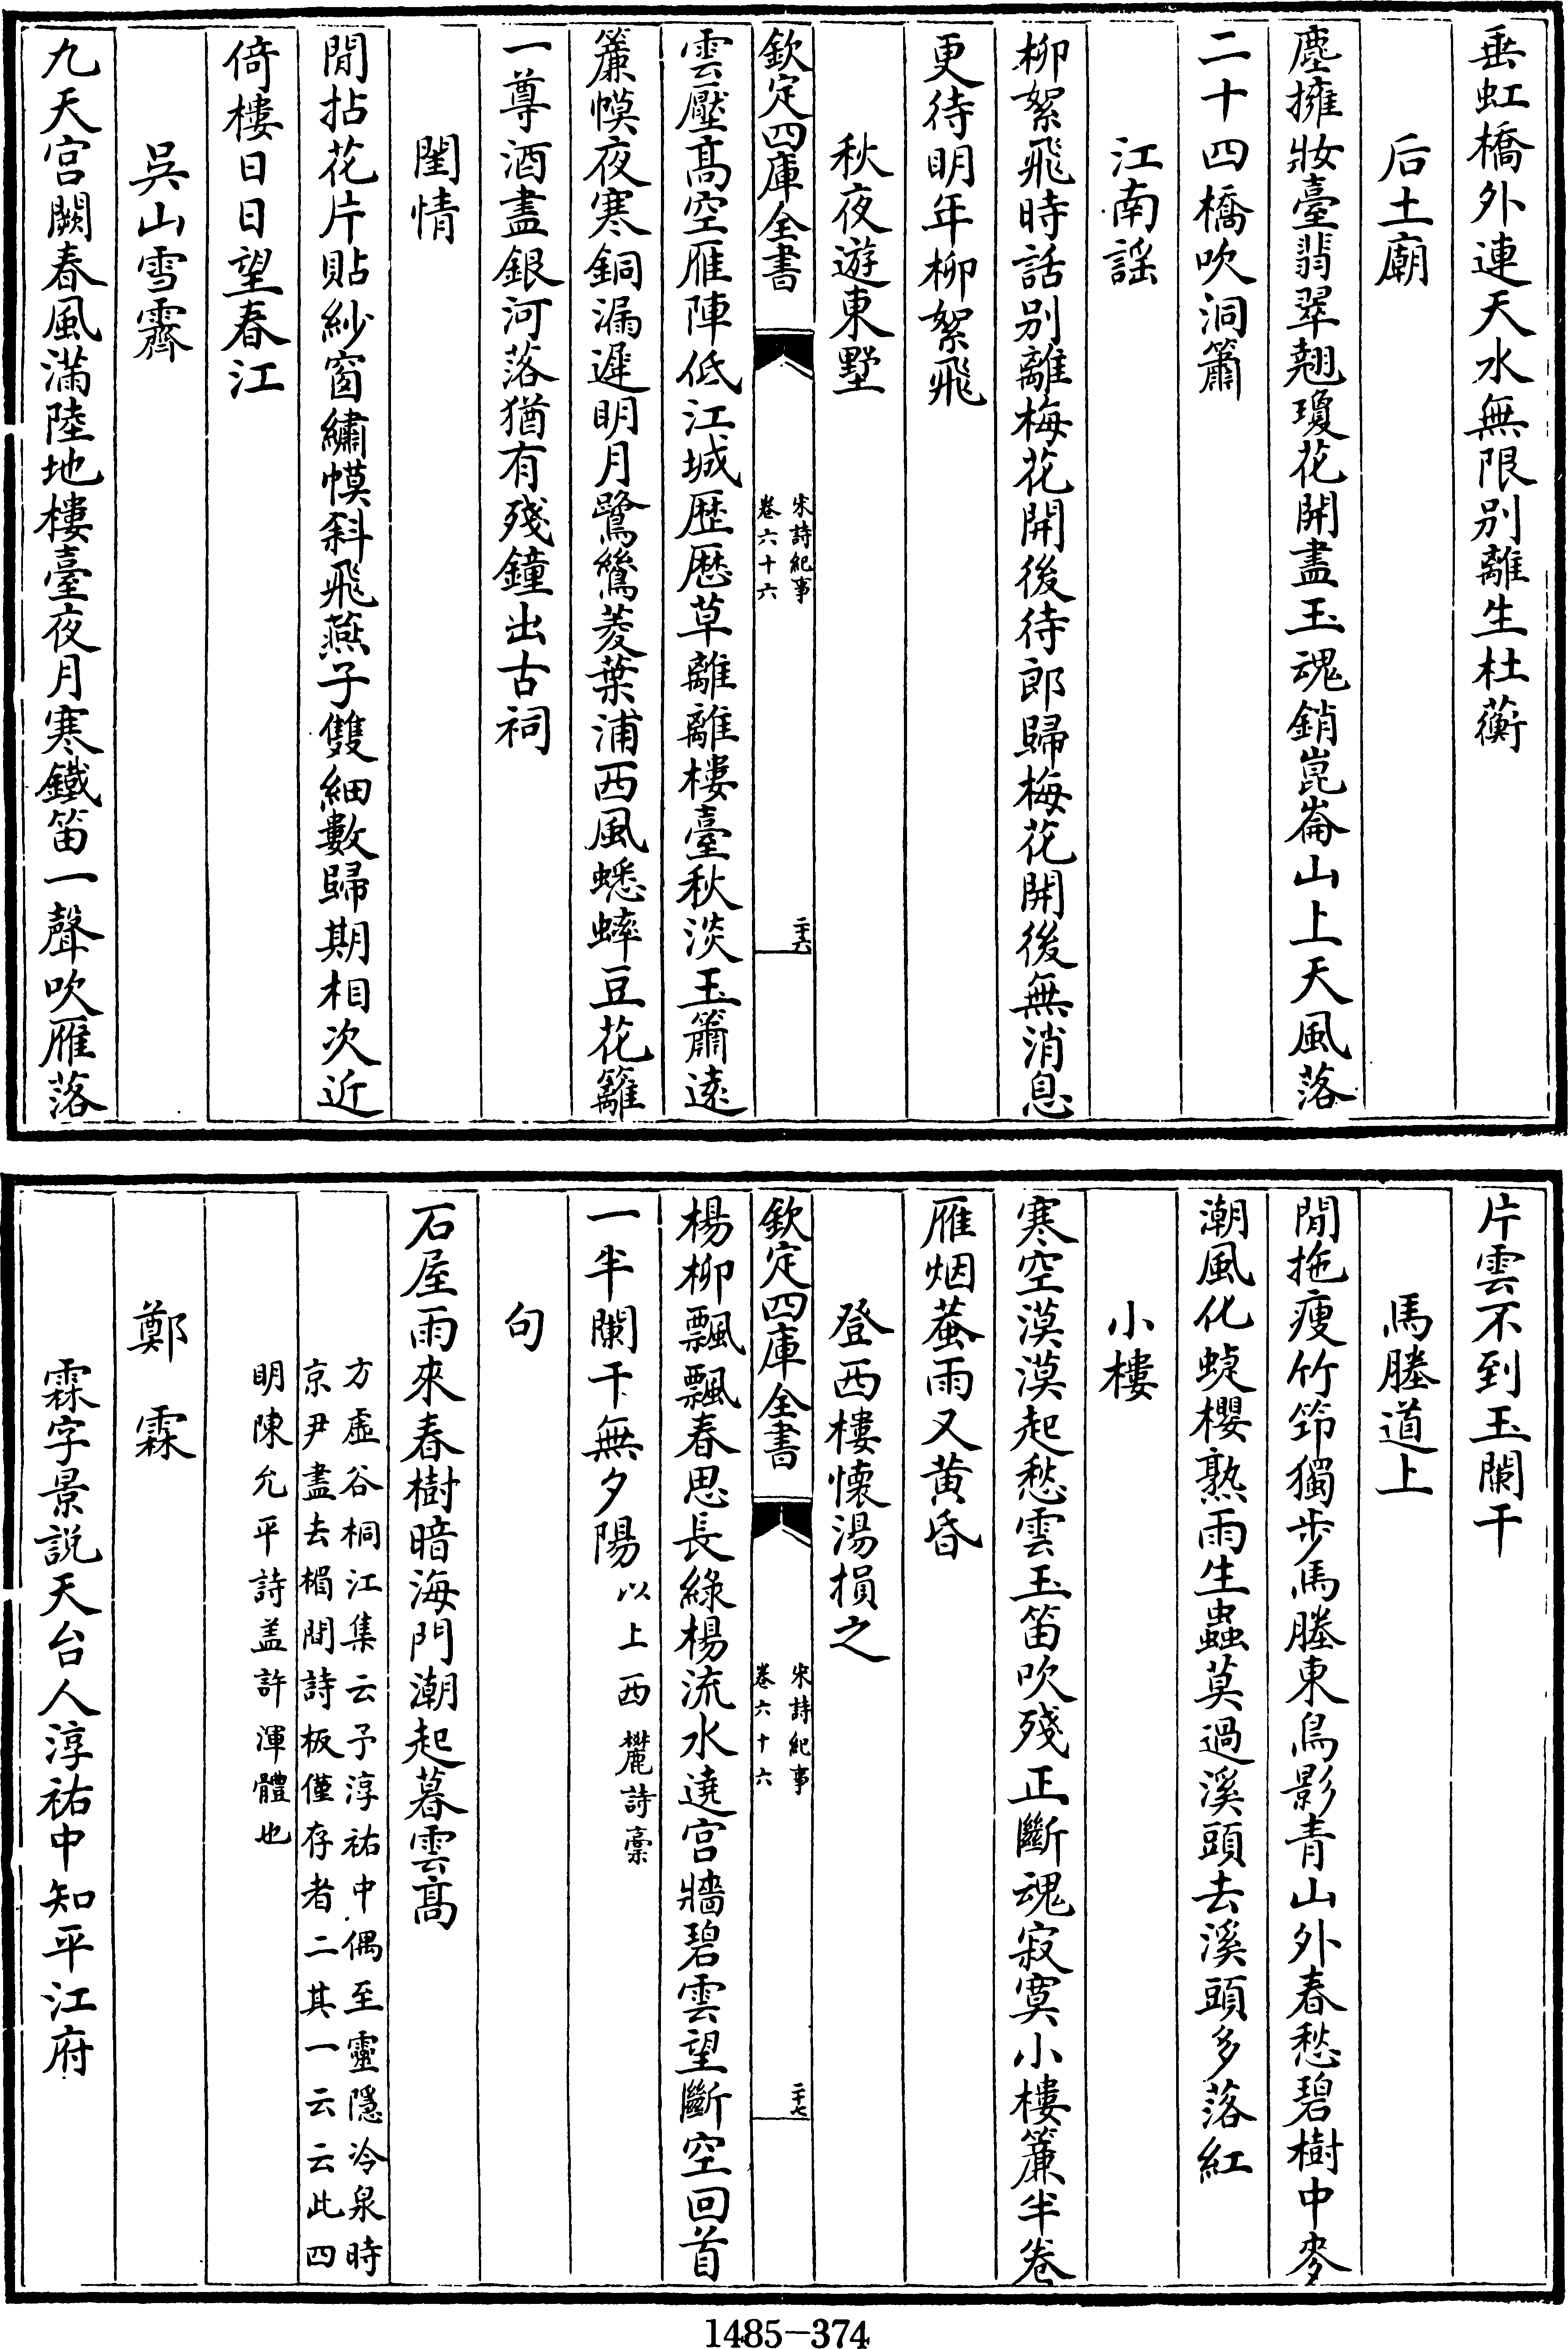 垂虹橋外連天水無限别離生杜蘅
后土廟
塵擁妝臺翡翠翹瓊花開盡玉魂銷崑崙山上天風落
二十四橋吹洞簫
江南謡
柳絮飛時話别離梅花開後待郎歸梅花開後無消息
更待明年柳絮飛
秋夜遊東墅
欽定四庫全書
宋詩紀事
卷六十六
二十六
雲壓髙空雁陣低江城歴歴草離離樓臺秋淡玉簫遠
簾幙夜寒銅漏遲明月鷺鷥菱葉浦西風蟋蟀豆花籬
一尊酒盡銀河落猶有殘鐘出古祠
閨情
閒拈花片貼紗窗繡幙斜飛燕子雙細數歸期相次近
倚樓日日望春江
吳山雪霽
九天宫闕春風滿陸地樓臺夜月寒鐵笛一聲吹雁落
片雲不到玉闌干
馬塍道上
閒拖瘦竹笻獨步馬塍東鳥影青山外春愁碧樹中麥
潮風化蜨櫻熟雨生蟲莫過溪頭去溪頭多落紅
小樓
寒空漠漠起愁雲玉笛吹殘正斷魂寂寞小樓簾半卷
雁烟蛩雨又黄昏
登西樓懷湯損之
欽定四庫全書
宋詩紀事
卷六十六
二十七
楊柳飄飄春思長綠楊流水遶宫牆碧雲望斷空回首
一半闌干無夕陽以上西麓詩稾
句
石屋雨來春樹暗海門潮起暮雲髙
方虚谷桐江集云予淳祐中偶至靈隱冷泉時
京尹盡去楣間詩板僅存者二其一云云此四
明陳允平詩盖許渾體也
鄭霖
霖字景説天台人淳祐中知平江府
1485-374